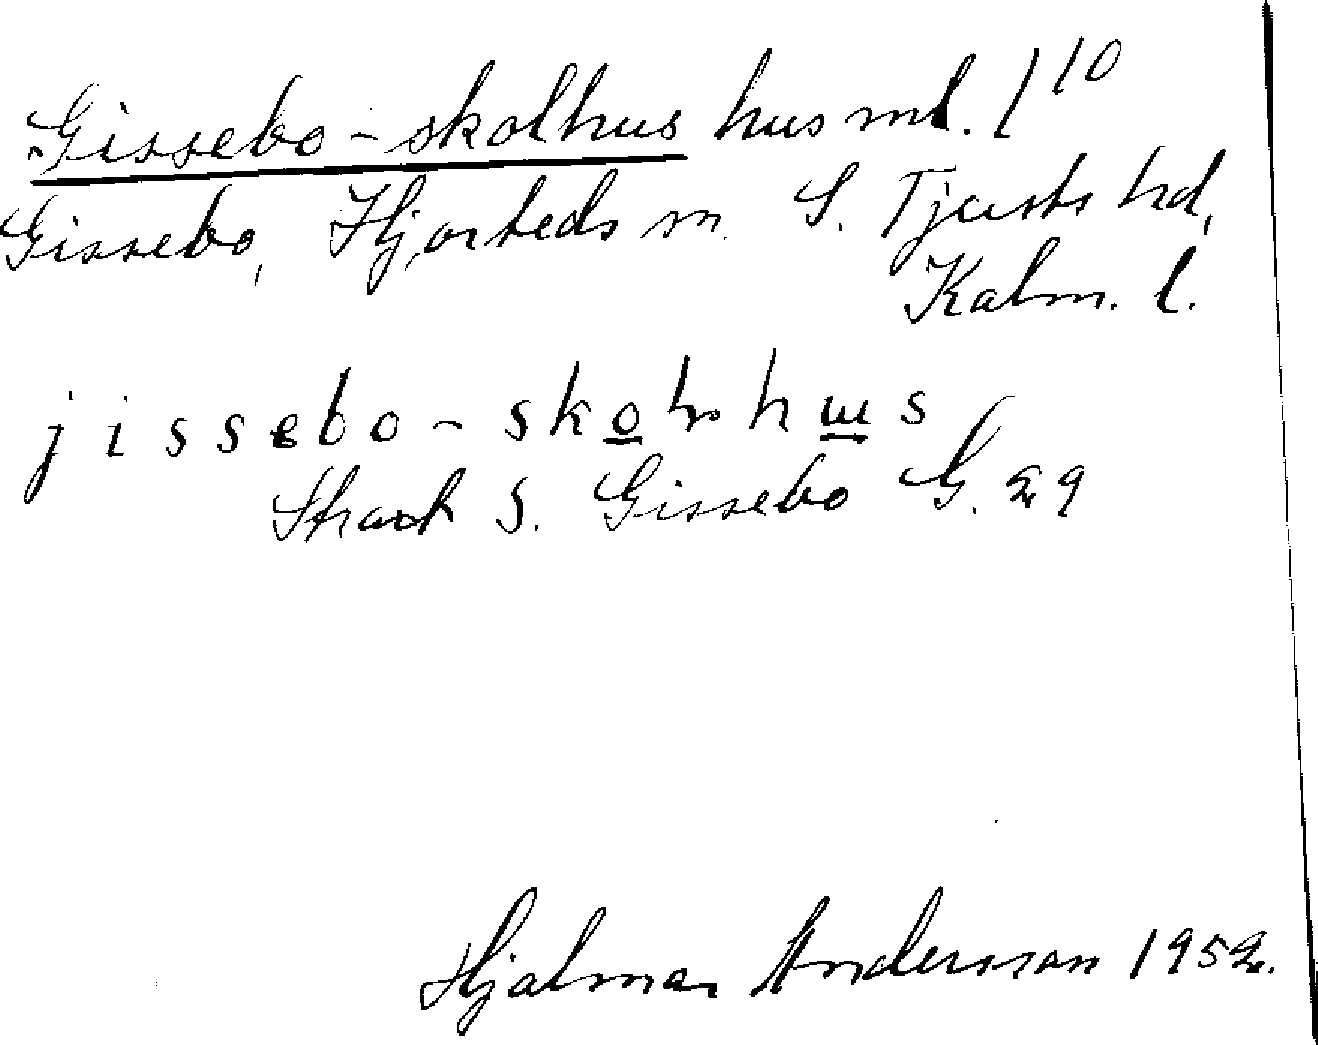 Gissebo-skolhus hus ml. 1¹⁰
Gissebo, Hjorteds sn. S. Tjusts hd,
Kalm. l.
jissebo-skolhus
Strax S. Gissebo G. 29
Hjalmar Andersson 1952.